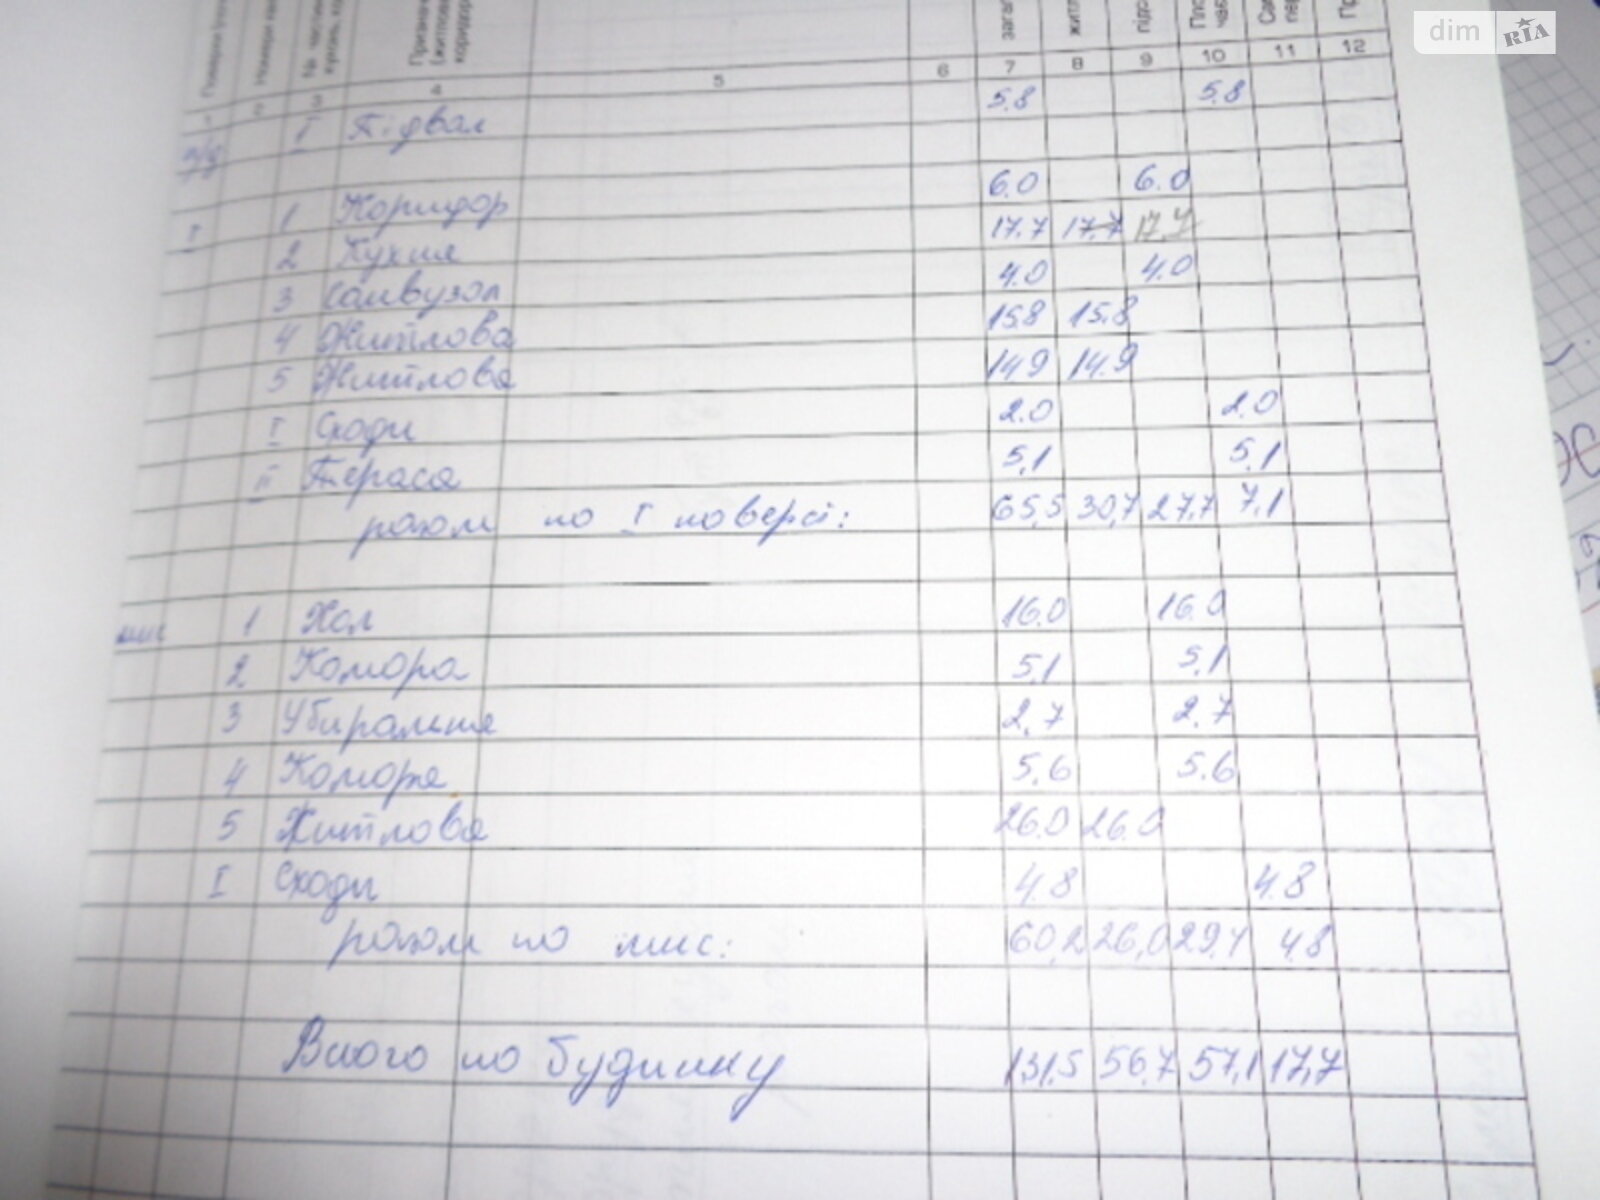 dim RIA
загал
житл
підс
1 2 3 4 5 6 7 8 9 10 11 12
п/д I Підвал 5.8 5.8
I 1 Коридор 6.0 6.0
2 Кухня 17.7 17.7 17.7
3 Санвузол 4.0 4.0
4 Житлова 15.8 15.8
5 Житлова 14.9 14.9
I Сходи 2.0 2.0
II Тераса 5,1 5,1
разом по I поверсі: 65,5 30,7 27,7 7,1
манс 1 Хол 16.0 16.0
2 Комора 5,1 5,1
3 Убиральня 2,7 2,7
4 Комора 5.6 5.6
5 Житлова 26.0 26.0
I Сходи 4.8 4.8
разом по манс: 60,2 26,0 29,4 4.8
Всього по будинку 131,5 56,7 57,1 17,7